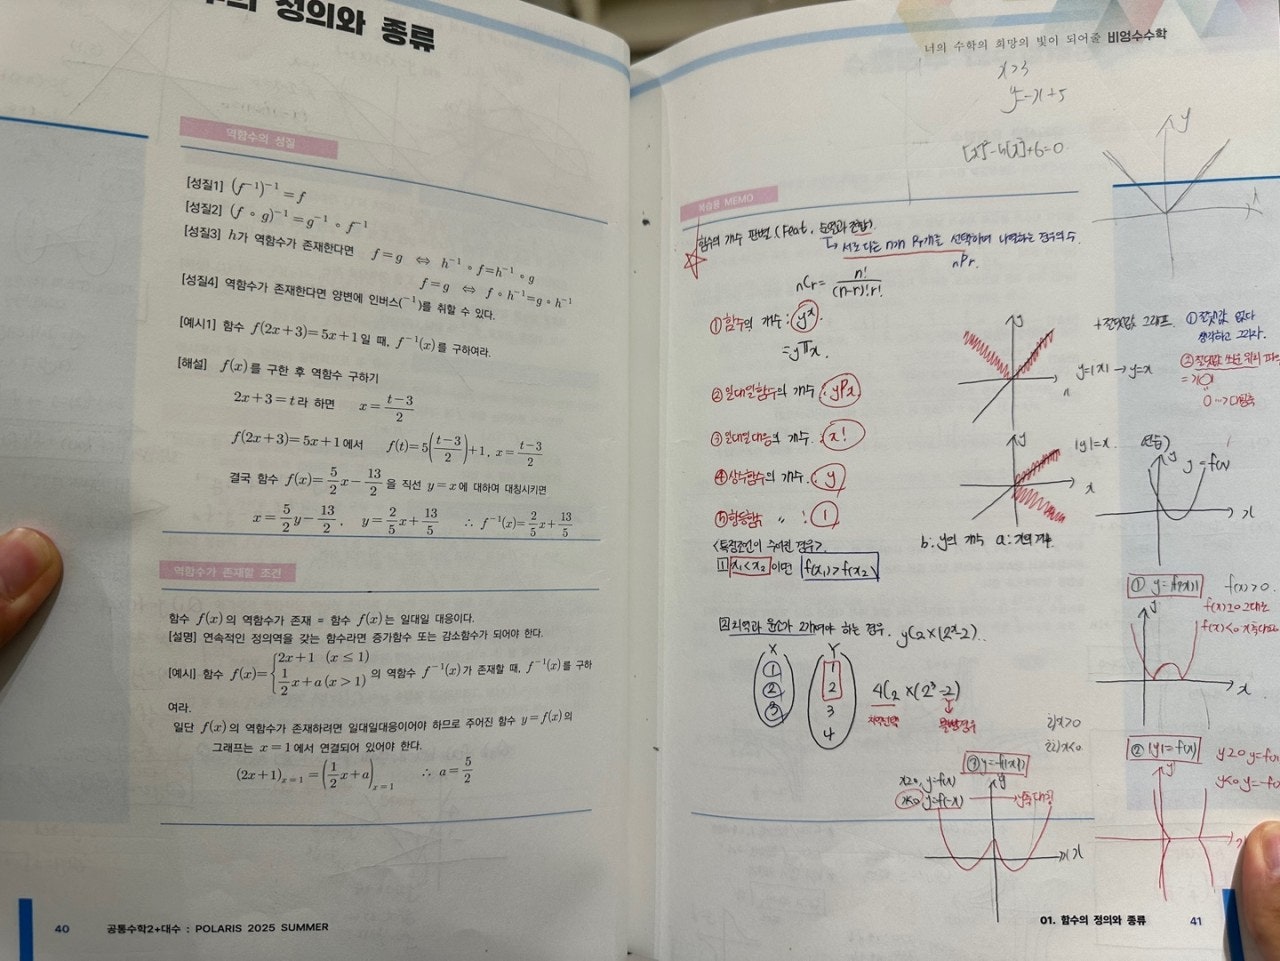 정의와 종류
역함수의 성질
[성질1] (f⁻¹)⁻¹ = f
[성질2] (f∘g)⁻¹ = g⁻¹∘f⁻¹
[성질3] h가 역함수가 존재한다면 f=g ⇔ h⁻¹∘f=h⁻¹∘g
f=g ⇔ f∘h⁻¹=g∘h⁻¹
[성질4] 역함수가 존재한다면 양변에 인버스(⁻¹)를 취할 수 있다.
[예시1] 함수 f(2x+3)=5x+1일 때, f⁻¹(x)를 구하여라.
[해설] f(x)를 구한 후 역함수 구하기
2x+3=t라 하면 x=(t-3)/2
f(2x+3)=5x+1에서 f(t)=5((t-3)/2)+1, x=(t-3)/2
결국 함수 f(x)=5/2x-13/2을 직선 y=x에 대하여 대칭시키면
x=5/2y-13/2, y=2/5x+13/5 ∴ f⁻¹(x)=2/5x+13/5
역함수가 존재할 조건
함수 f(x)의 역함수가 존재 = 함수 f(x)는 일대일 대응이다.
[설명] 연속적인 정의역을 갖는 함수라면 증가함수 또는 감소함수가 되어야 한다.
[예시] 함수 f(x)={2x+1 (x≤1)
1/2x+a (x>1) 의 역함수 f⁻¹(x)가 존재할 때, f⁻¹(x)를 구하
여라.
일단 f(x)의 역함수가 존재하려면 일대일대응이어야 하므로 주어진 함수 y=f(x)의
그래프는 x=1에서 연결되어 있어야 한다.
(2x+1)ₓ₌₁=(1/2x+a)ₓ₌₁ ∴ a=5/2
40 공통수학2+대수 : POLARIS 2025 SUMMER
너의 수학의 희망의 빛이 되어줄 비엉수수학
x>3
y=-x+5
복습용 MEMO
함수의 개수 판별 (feat. 순열과 조합)
→ 서로 다른 n개 r개를 선택하여 나열하는 경우의 수
nPr
nCr = n!/(n-r)!r!
① 함수의 개수 : yˣ
= yΠx.
② 일대일함수의 개수 : yPx
③ 일대일대응의 개수 : x!
④ 상수함수의 개수 : y
⑤ 항등함수 〃 : 1
<특정조건이 주어진 경우>
1 x₁<x₂ 이면 f(x₁)>f(x₂)
2 치역과 원소가 2개여야 하는 경우. yC2×(2ˣ-2)
X Y
1 1
2 2
3 3
4
4C2×(2³-2)
치역선택
y
x
+절댓값 그래프.
y=|x| → y=x
① 절댓값 없다
생각하고 그리자.
y
|y|=x
x
b : y의 개수 a : x의 개수
y y=f(x)
x
① y=|f(x)|
f(x)>0
f(x)≥0 그대로
y
x
② |y|=f(x)
y≥0 y=f(x)
y<0 y=-f(x)
y
i) x>0
ii) x<0
③ y=f(|x|)
x≥0, y=f(x)
x<0 y=f(-x) → y축대칭
y
x
01. 함수의 정의와 종류 41